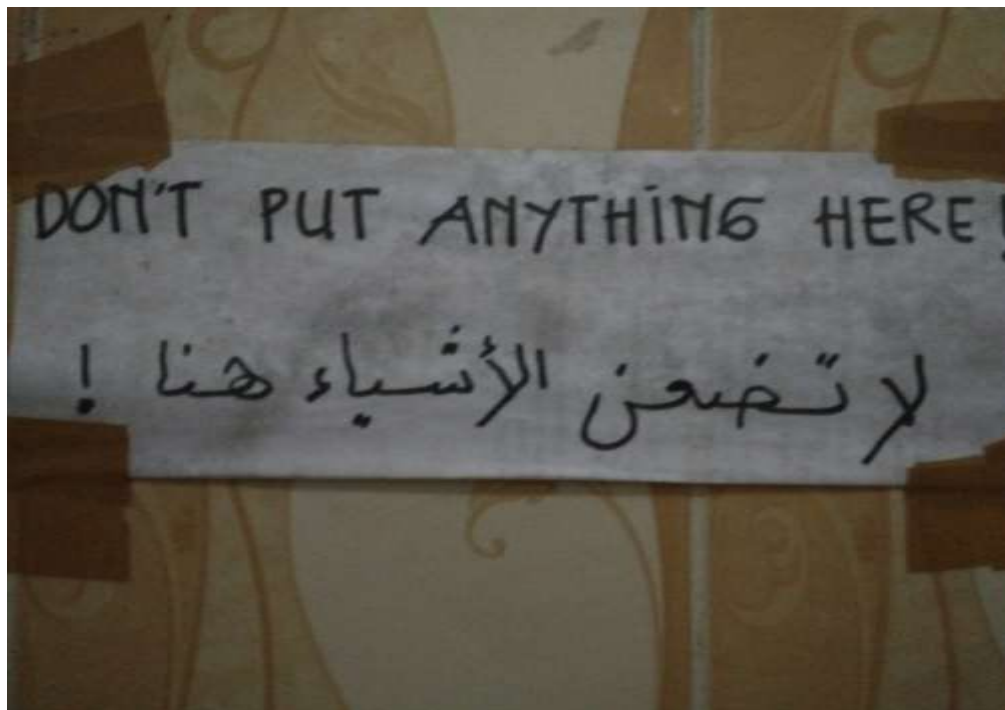 DON'T PUT ANYTHING HERE!
لا تضعن الأشياء هنا !